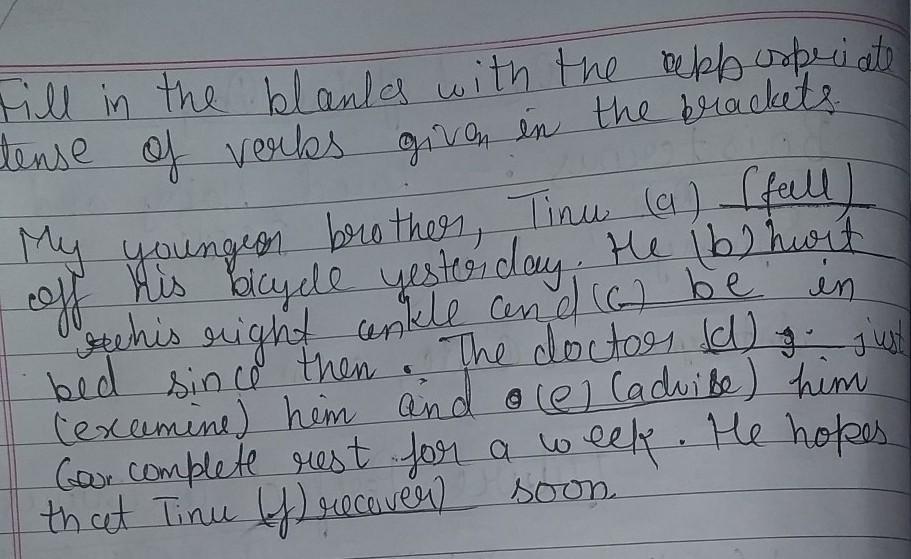 Fill in the blanks with the appropriate
tense of verbs given in the brackets.
My younger brother, Tinu (a) (fall)
off his bicycle yesterday. He (b) hurt
his right ankle and (c) be in
bed since then. The doctor (d) just
(examine) him and (e) (advise) him
complete rest for a week. He hopes
that Tinu (f) recover) soon.